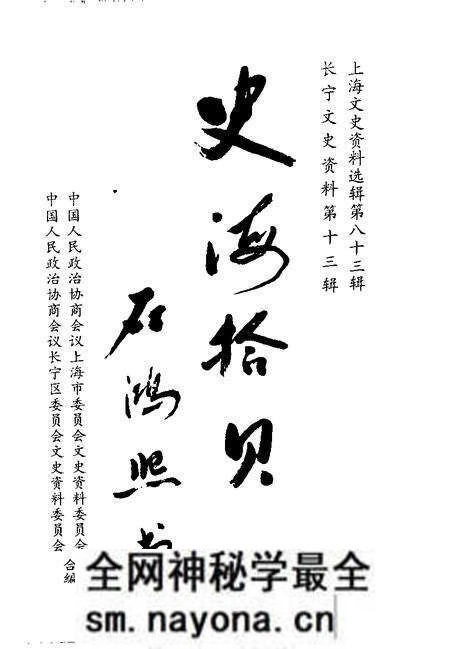 上海文史资料选辑第八十三辑
长宁文史资料第十三辑
史海拾贝
石鸿熙书
中国人民政治协商会议上海市委员会文史资料委员会
中国人民政治协商会议长宁区委员会文史资料委员会
合编
全网神秘学最全
sm.nayona.cn